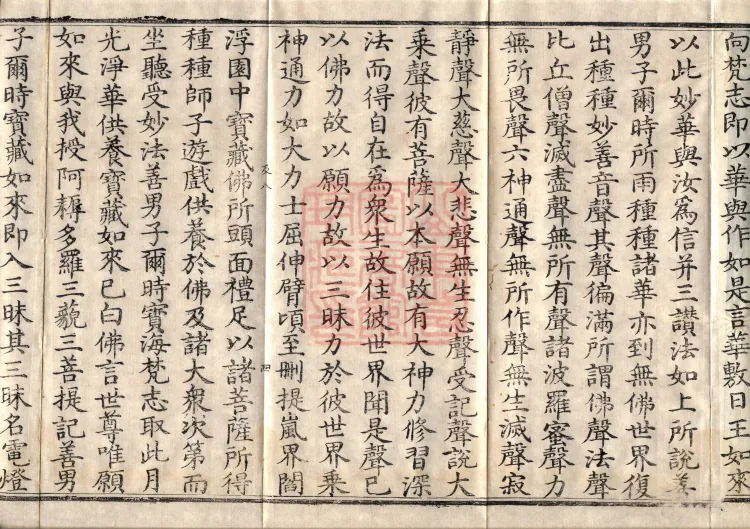 向梵志即以華與作如是言華敷日王如來
以此妙華與汝爲信并三讚法如上所說善
男子爾時所雨種種諸華亦到無佛世界復
出種種妙善音聲其聲徧滿所謂佛聲法聲
比丘僧聲滅盡聲無所有聲諸波羅蜜聲力
無所畏聲六神通聲無所作聲無生滅聲寂
靜聲大慈聲大悲聲無生忍聲受記聲說大
乗聲彼有菩薩以本願故有大神力修習深
法而得自在爲衆生故住彼世界聞是聲已
以佛力故以願力故以三昧力於彼世界乗
神通力如大力士屈伸臂頃至刪提嵐界閻
浮園中寶藏佛所頭面禮足以諸菩薩所得
種種師子遊戲供養於佛及諸大衆次第而
坐聽受妙法善男子爾時寶海梵志取此月
光淨華供養寶藏如來已白佛言世尊唯願
如來與我授阿耨多羅三藐三菩提記善男
子爾時寶藏如來即入三昧其三昧名電燈